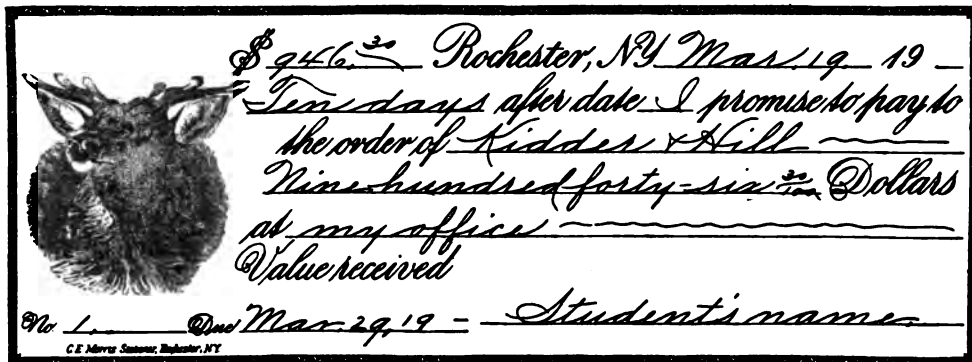 $ 946.30 Rochester, NY Mar. 19 19 _
Ten days after date I promise to pay to
the order of Kidder & Hill
Nine hundred forty-six 30/100 Dollars
at my office
Value received
No 1. Due Mar. 29, 19 - Student's name.
C.E. Morris Stationer, Rochester, N.Y.